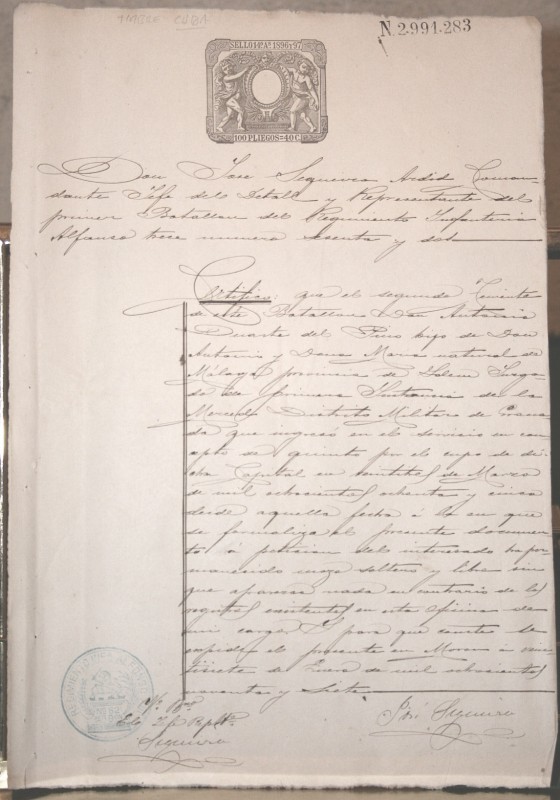 TIMBRE CUBA
N.2.991.283
SELLO 14º Aº 1896 Y 97
100 PLIEGOS=40C
Don José Sequeira Ardid Coman-
dante Jefe del Detall y Representante del
primer Batallon del Regimiento Infanteria
Alfonso trece numero sesenta y dos
Certifico que el segundo Teniente
de este Batallon Don Antonio
Duarte del Pino hijo de Don
Antonio y Dona Maria natural de
Málaga provincia de Idem Juzga-
do de primera Instancia de la
Merced Distrito Militar de Grana-
da que ingresó en el servicio en con-
cepto de quinto por el cupo de di-
cha Capital en veintitres de Marzo
de mil ochocientos ochenta y cinco
desde aquella fecha á la en que
se formaliza el presente documen-
to á peticion del interesado ha per-
manecido mozo soltero y libre sin
que aparezca nada en contrario de los
registros existentes en esta oficina de
mi cargo Y para que conste le
expido el presente en Moron á vein-
tisiete de Enero de mil ochocientos
noventa y siete
Sequeira
José Sequeira